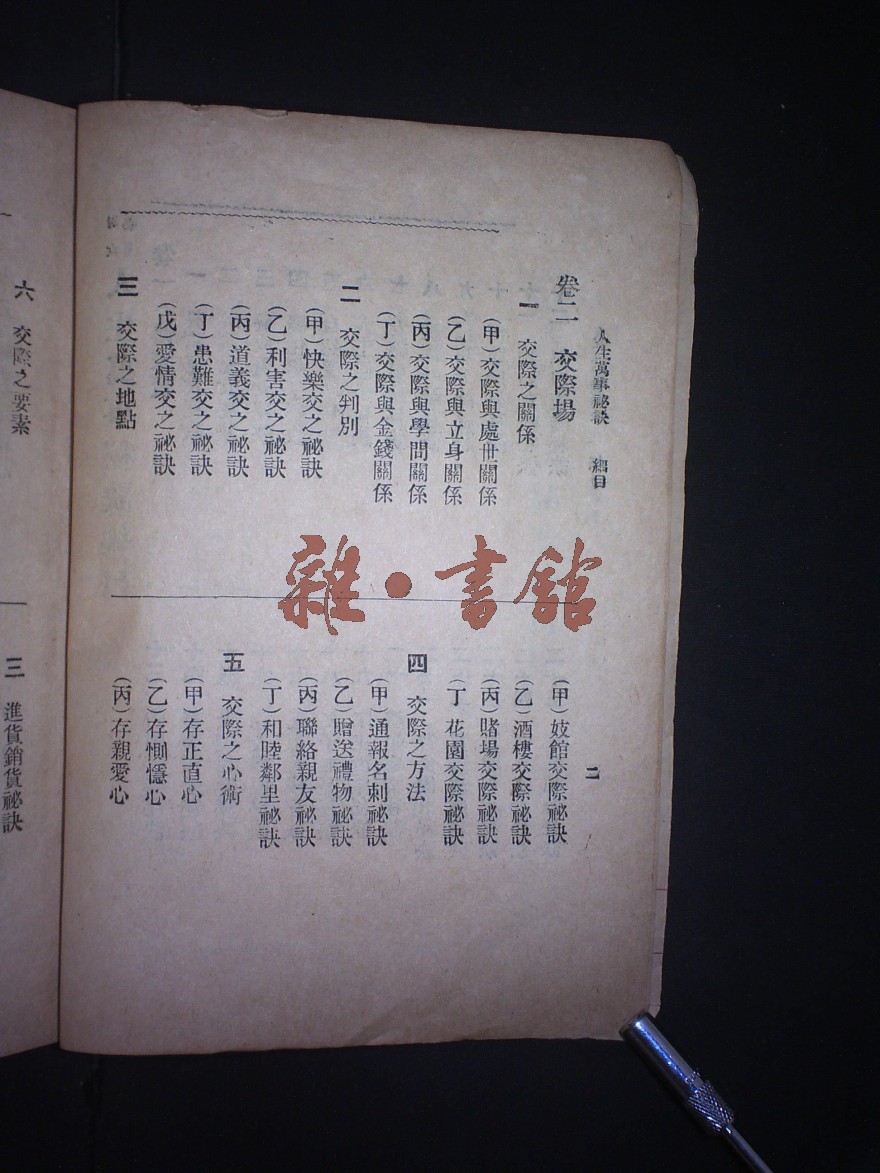 人生萬事祕訣　細目
二
卷二　交際場
一　交際之關係
（甲）交際與處世關係
（乙）交際與立身關係
（丙）交際與學問關係
（丁）交際與金錢關係
二　交際之判別
（甲）快樂交之祕訣
（乙）利害交之祕訣
（丙）道義交之祕訣
（丁）患難交之祕訣
（戊）愛情交之祕訣
三　交際之地點
（甲）妓館交際祕訣
（乙）酒樓交際祕訣
（丙）賭場交際祕訣
（丁）花園交際祕訣
四　交際之方法
（甲）通報名刺祕訣
（乙）贈送禮物祕訣
（丙）聯絡親友祕訣
（丁）和睦鄰里祕訣
五　交際之心術
（甲）存正直心
（乙）存惻隱心
（丙）存親愛心
六　交際之要素
三　進貨銷貨祕訣
雜·書館